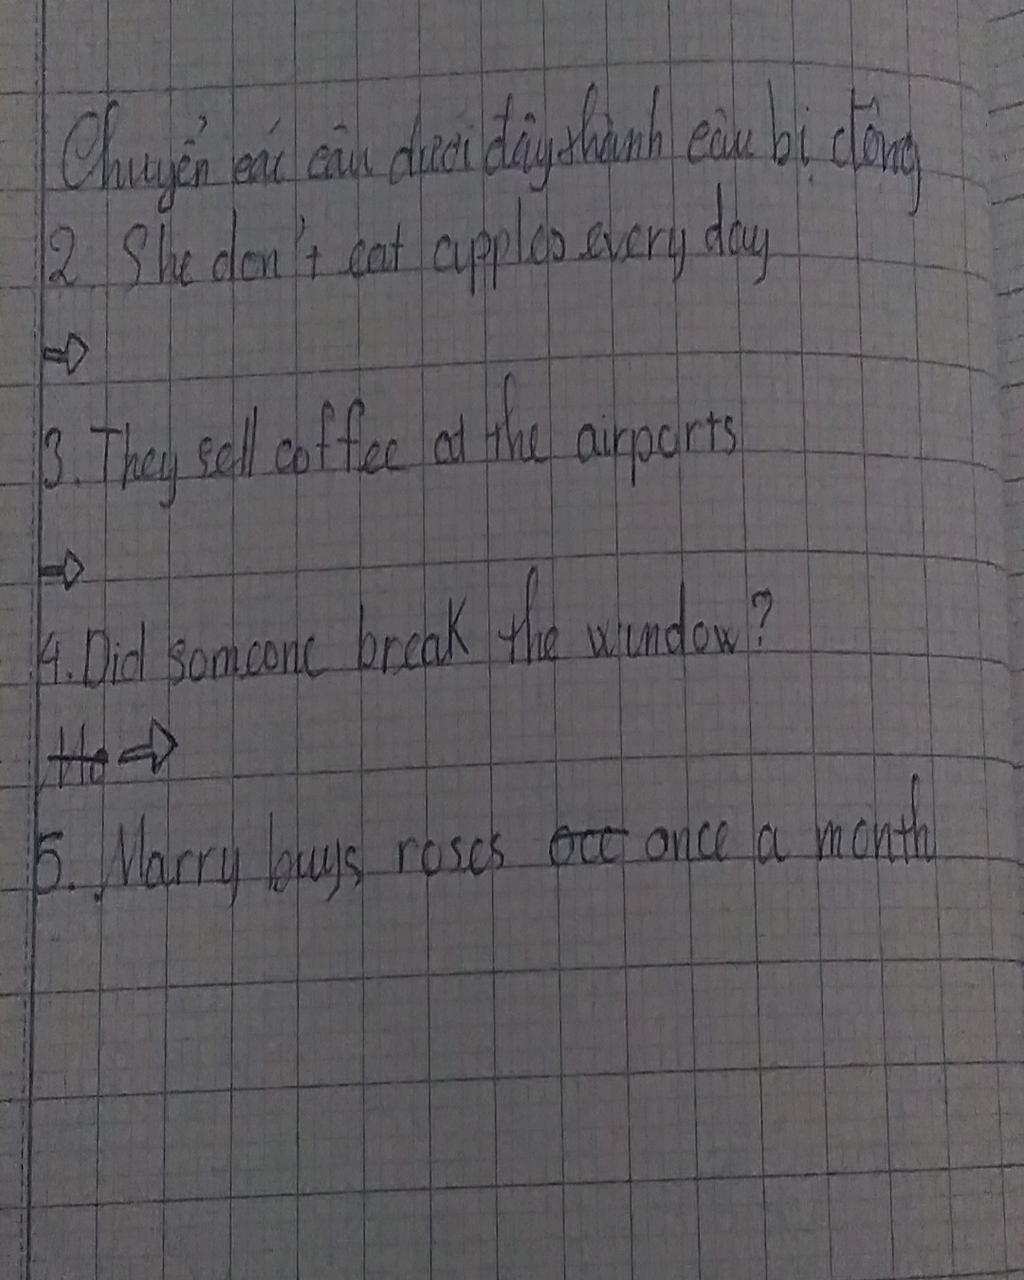 Chuyển các câu dưới đây thành câu bị động
2 She don't eat apples every day
⇒
3. They sell coffee at the airports
⇒
4. Did someone break the window?
⇒
5. Marry buys roses once a month